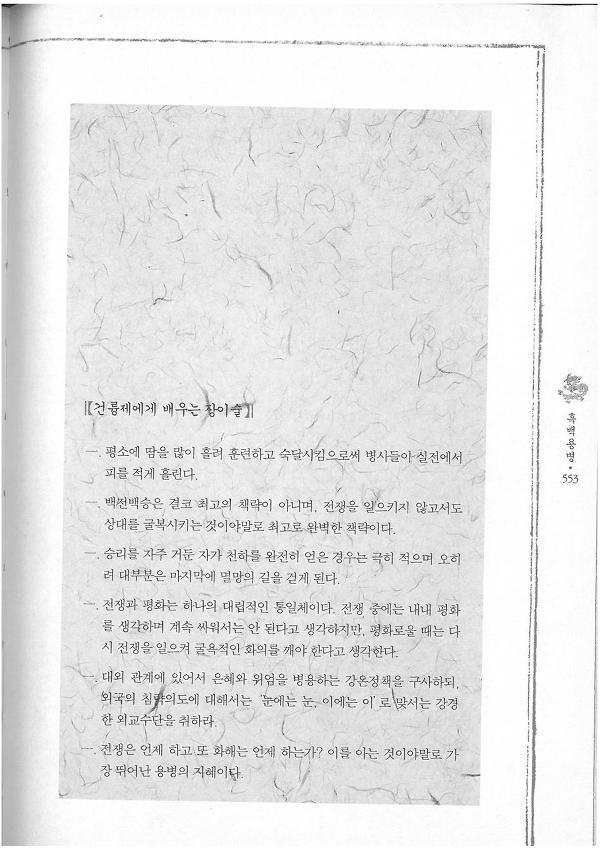 【건륭제에게 배우는 장이술】
一. 평소에 땀을 많이 흘려 훈련하고 숙달시킴으로써 병사들이 실전에서
피를 적게 흘린다.
一. 백전백승은 결코 최고의 책략이 아니며, 전쟁을 일으키지 않고서도
상대를 굴복시키는 것이야말로 최고로 완벽한 책략이다.
一. 승리를 자주 거둔 자가 천하를 완전히 얻은 경우는 극히 적으며 오히
려 대부분은 마지막에 멸망의 길을 걷게 된다.
一. 전쟁과 평화는 하나의 대립적인 통일체이다. 전쟁 중에는 내내 평화
를 생각하며 계속 싸워서는 안 된다고 생각하지만, 평화로울 때는 다
시 전쟁을 일으켜 굴욕적인 화의를 깨야 한다고 생각한다.
一. 대외 관계에 있어서 은혜와 위엄을 병용하는 강온정책을 구사하되,
외국의 침략의도에 대해서는 '눈에는 눈, 이에는 이'로 맞서는 강경
한 외교수단을 취하라.
一. 전쟁은 언제 하고 또 화해는 언제 하는가? 이를 아는 것이야말로 가
장 뛰어난 용병의 지혜이다.
흑백용병 • 553